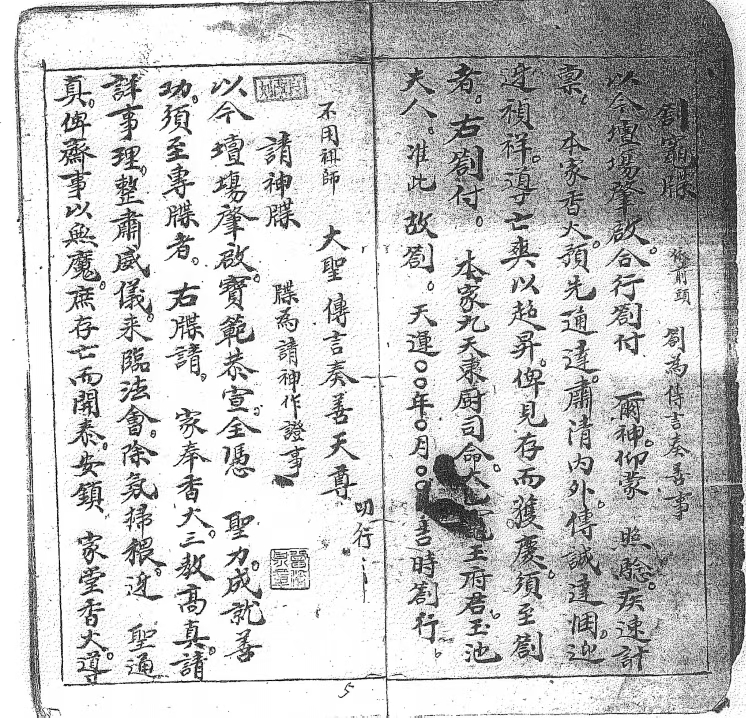 劄竈牒 依前頭 劄為傳言奏善事
以今壇場肇啟。合行劄付 爾神。仰蒙 照驗。疾速計
禀。本家香火。預先通達。肅清內外。傳誠達悃。迎
迓禎祥。導亡爽以超昇。俾見存而獲慶。須至劄
者。右劄付。本家九天東厨司命 王府君。玉池
夫人。准此故劄。天運〇〇年〇月〇〇 吉時劄行。
不用祖師 大聖傳言奏善天尊。叩行
請神牒 牒為請神作證事
以今壇場肇啟。寶範恭宣。全憑 聖力。成就善
功。須至專牒者。右牒請。家奉香火。三教高真。請
詳事理。整肅威儀。来臨法會。除氛掃穢。迓 聖通
真。俾齋事以無魔。庶存亡而開泰。安鎮 家堂香火。導
5